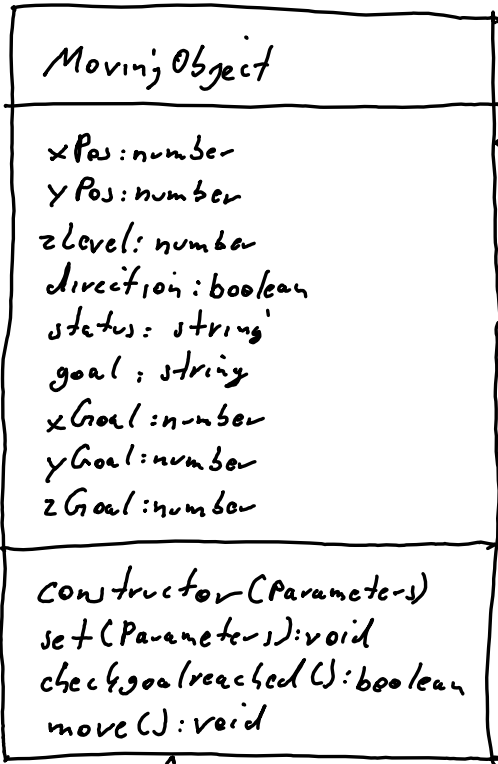 MovingObject
xPos:number
yPos:number
zLevel: number
direction:boolean
status: string
goal: string
xGoal:number
yGoal:number
zGoal:number
constructor(Parameters)
set(Parameters):void
checkgoalreached():boolean
move():void